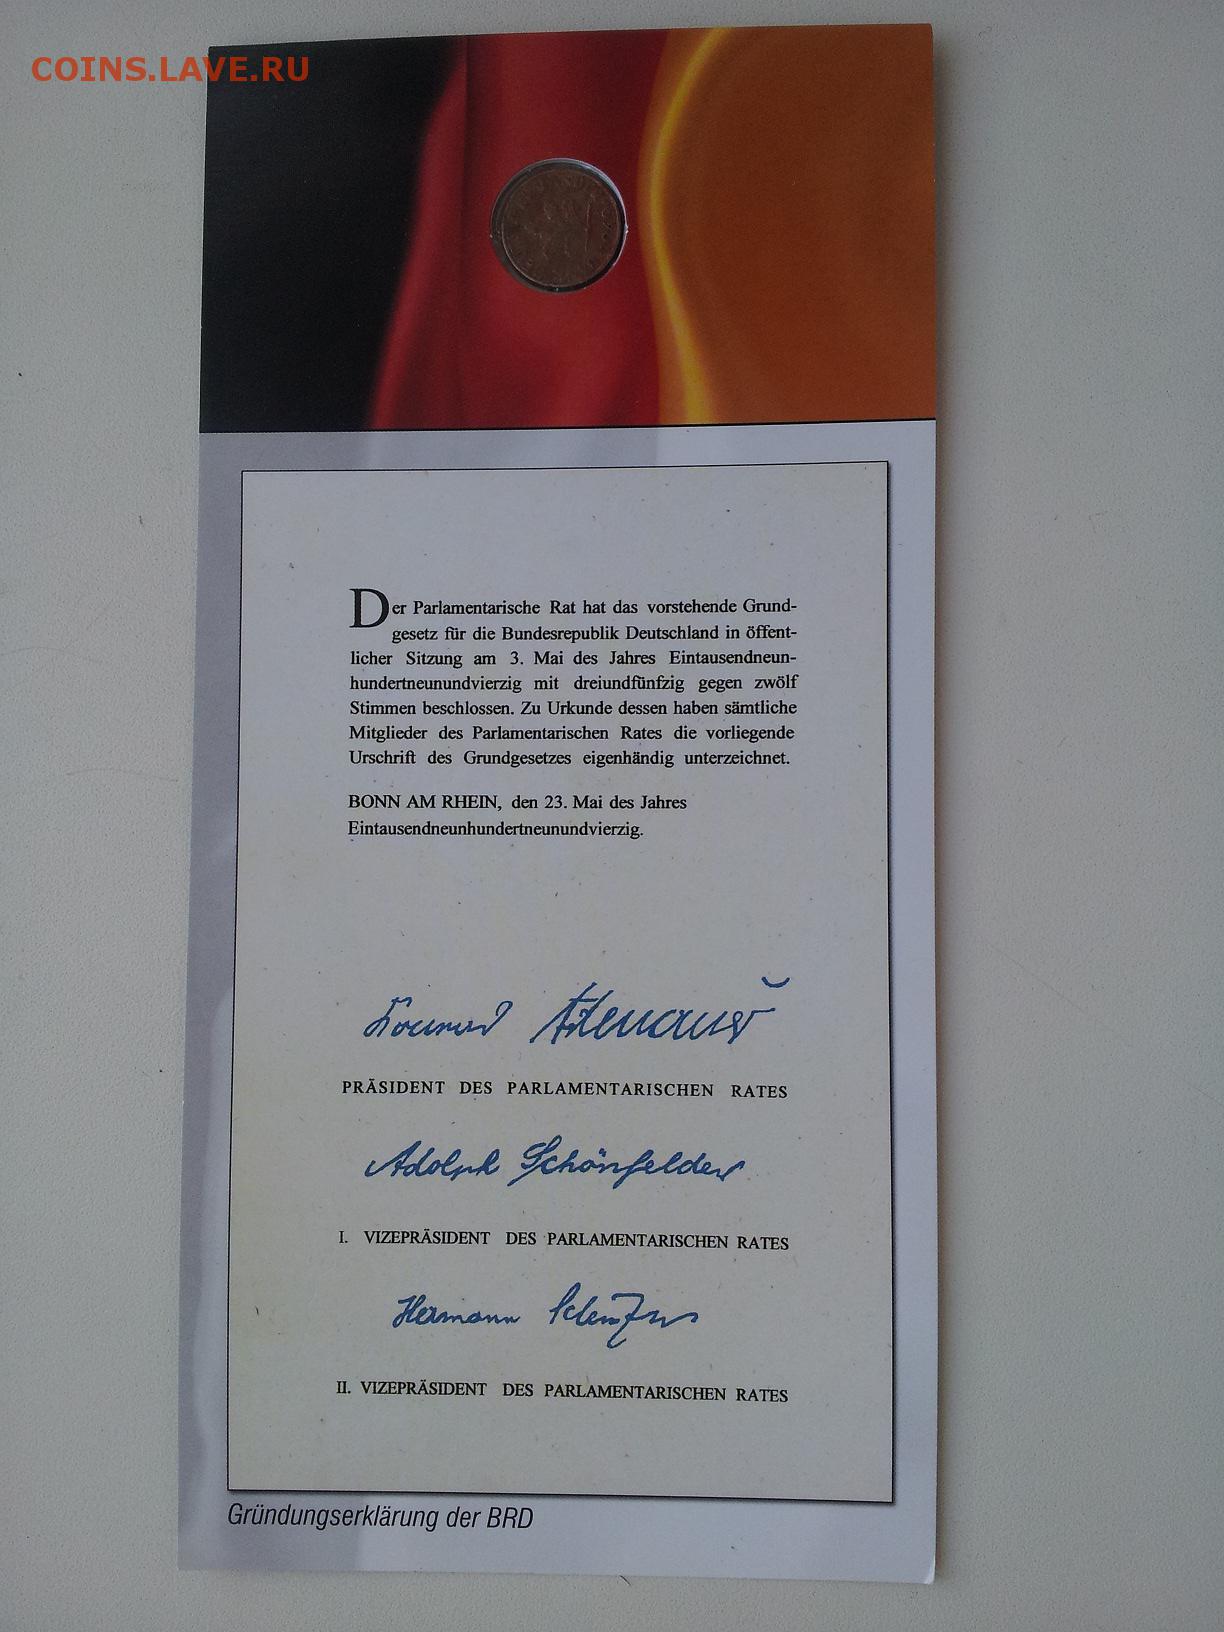 COINS.LAVE.RU
Der Parlamentarische Rat hat das vorstehende Grund-
gesetz für die Bundesrepublik Deutschland in öffent-
licher Sitzung am 3. Mai des Jahres Eintausendneun-
hundertneunundvierzig mit dreiundfünfzig gegen zwölf
Stimmen beschlossen. Zu Urkunde dessen haben sämtliche
Mitglieder des Parlamentarischen Rates die vorliegende
Urschrift des Grundgesetzes eigenhändig unterzeichnet.
BONN AM RHEIN, den 23. Mai des Jahres
Eintausendneunhundertneunundvierzig.
Konrad Adenauer
PRÄSIDENT DES PARLAMENTARISCHEN RATES
Adolph Schönfelder
I. VIZEPRÄSIDENT DES PARLAMENTARISCHEN RATES
Hermann
II. VIZEPRÄSIDENT DES PARLAMENTARISCHEN RATES
Gründungserklärung der BRD